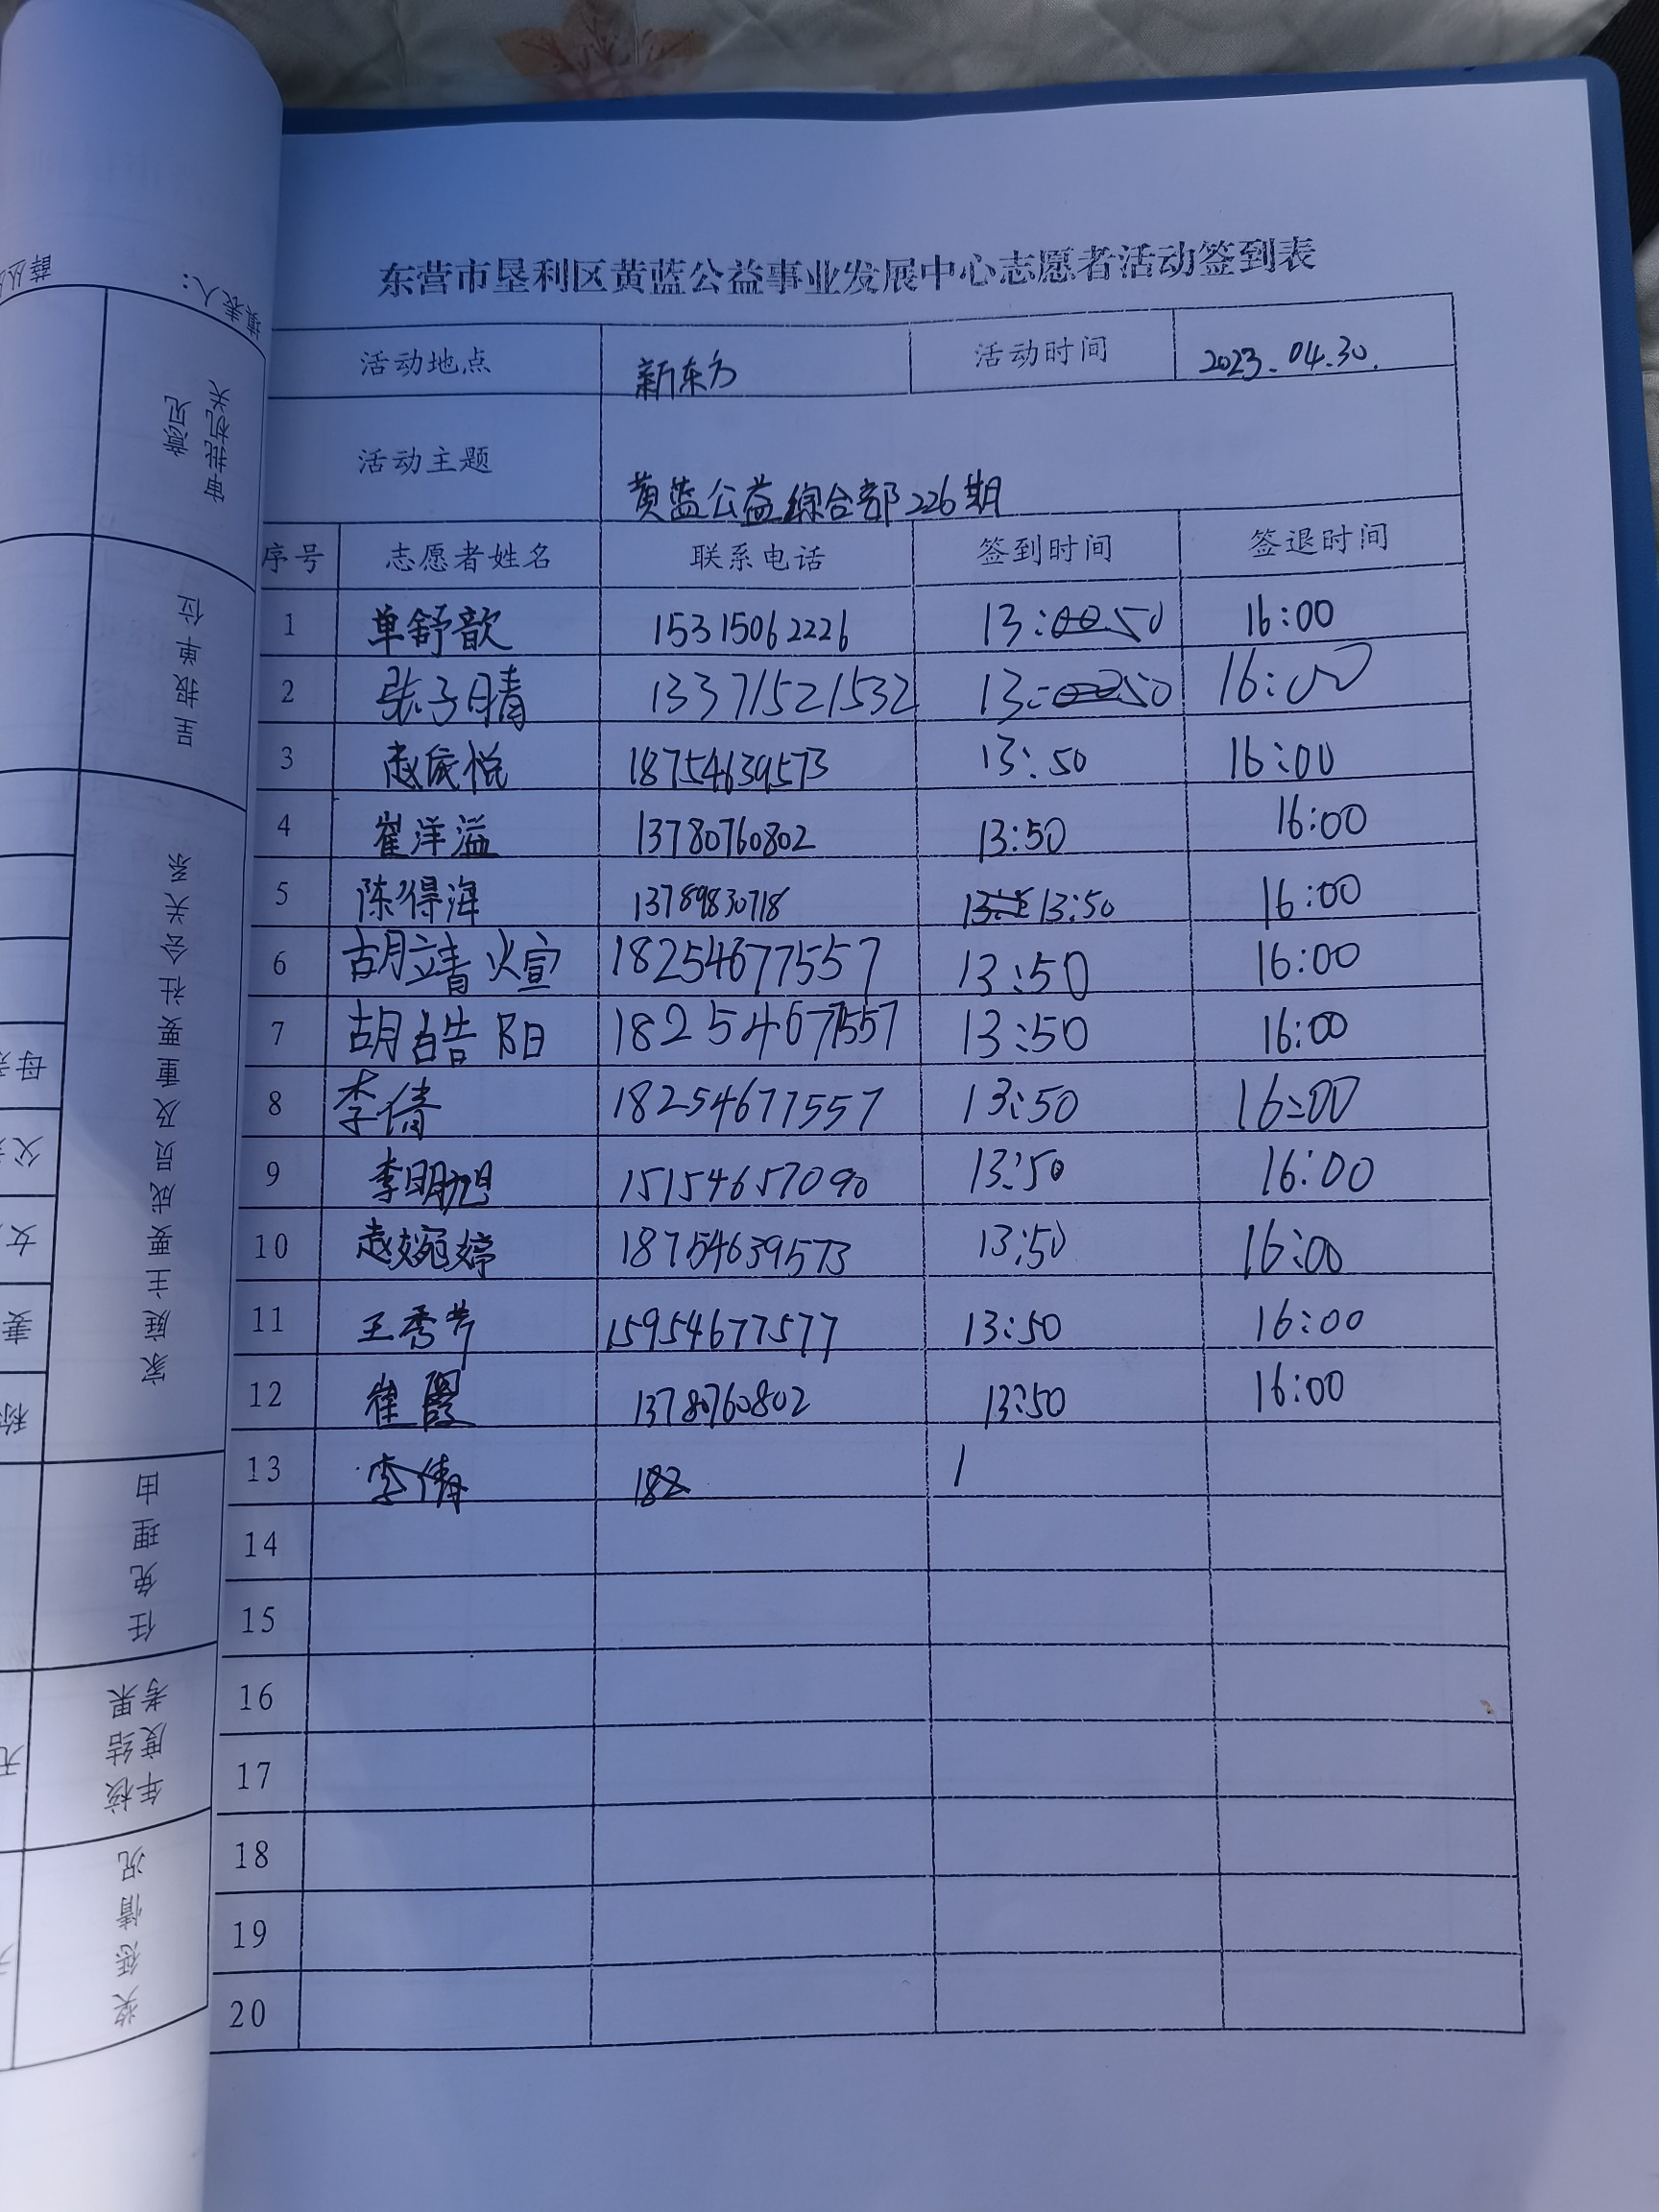 东营市垦利区黄蓝公益事业发展中心志愿者活动签到表
活动地点 新东方 活动时间 2023.04.30.
活动主题 黄蓝公益综合部226期
序号 志愿者姓名 联系电话 签到时间 签退时间
1 单舒歆 15315062226 13:50 16:00
2 张子晴 13371521532 13:50 16:00
3 赵依悦 18754639573 13:50 16:00
4 崔洋溢 13780760802 13:50 16:00
5 陈得海 13789830718 13:50 16:00
6 胡靖煊 18254677557 13:50 16:00
7 胡皓阳 18254677557 13:50 16:00
8 李倩 18254677557 13:50 16:00
9 李明旭 15154657090 13:50 16:00
10 赵婉婷 18754639573 13:50 16:00
11 王秀芹 15954677577 13:50 16:00
12 崔 13780760802 13:50 16:00
13 李倩 182 1
14
15
16
17
18
19
20
填表人：
审批机关
意见
呈报单位
家庭主要成员及重要社会关系
任免理由
年度考
核结果
奖惩情况